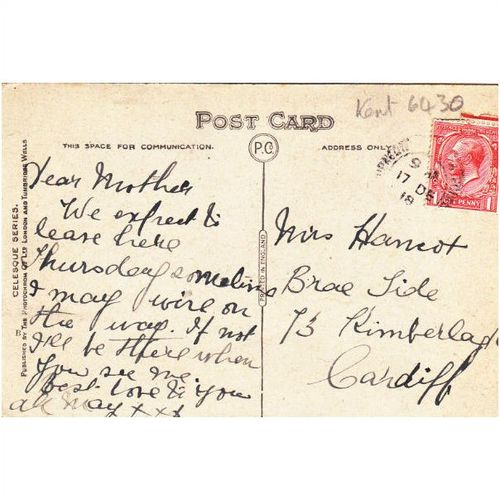 Kent 6430
POST CARD
THIS SPACE FOR COMMUNICATION.
P.C.
ADDRESS ONLY
Dear Mother
We expect to
leave here
Thursday sometime
I may wire on
the way. If not
I'll be there when
you see me
best love to you
all May xxx
Mrs Hancot
Brae Side
73 Kimberlag
Cardiff
9 AM
17 DE
18
PENNY 1
PRINTED IN ENGLAND
CELESQUE SERIES.
PUBLISHED BY THE PHOTOCHROM Co LTD LONDON AND TUNBRIDGE WELLS